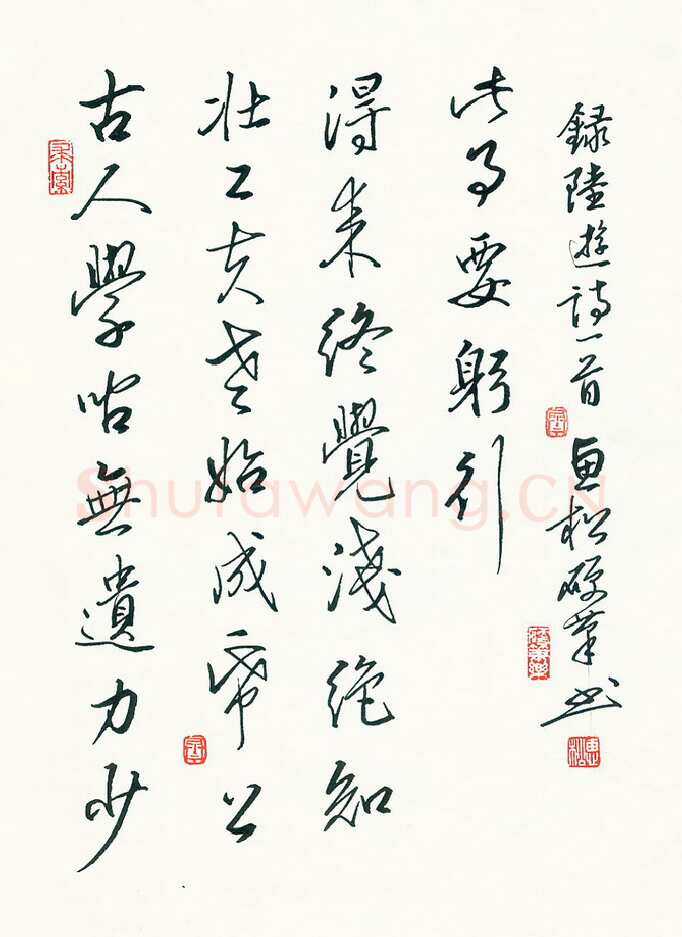 古人學問無遺力少
壯工夫老始成帋上
得來終覺淺絕知
此事要躬行
録陸遊詩一首 松硬筆书
Shufawang.CN